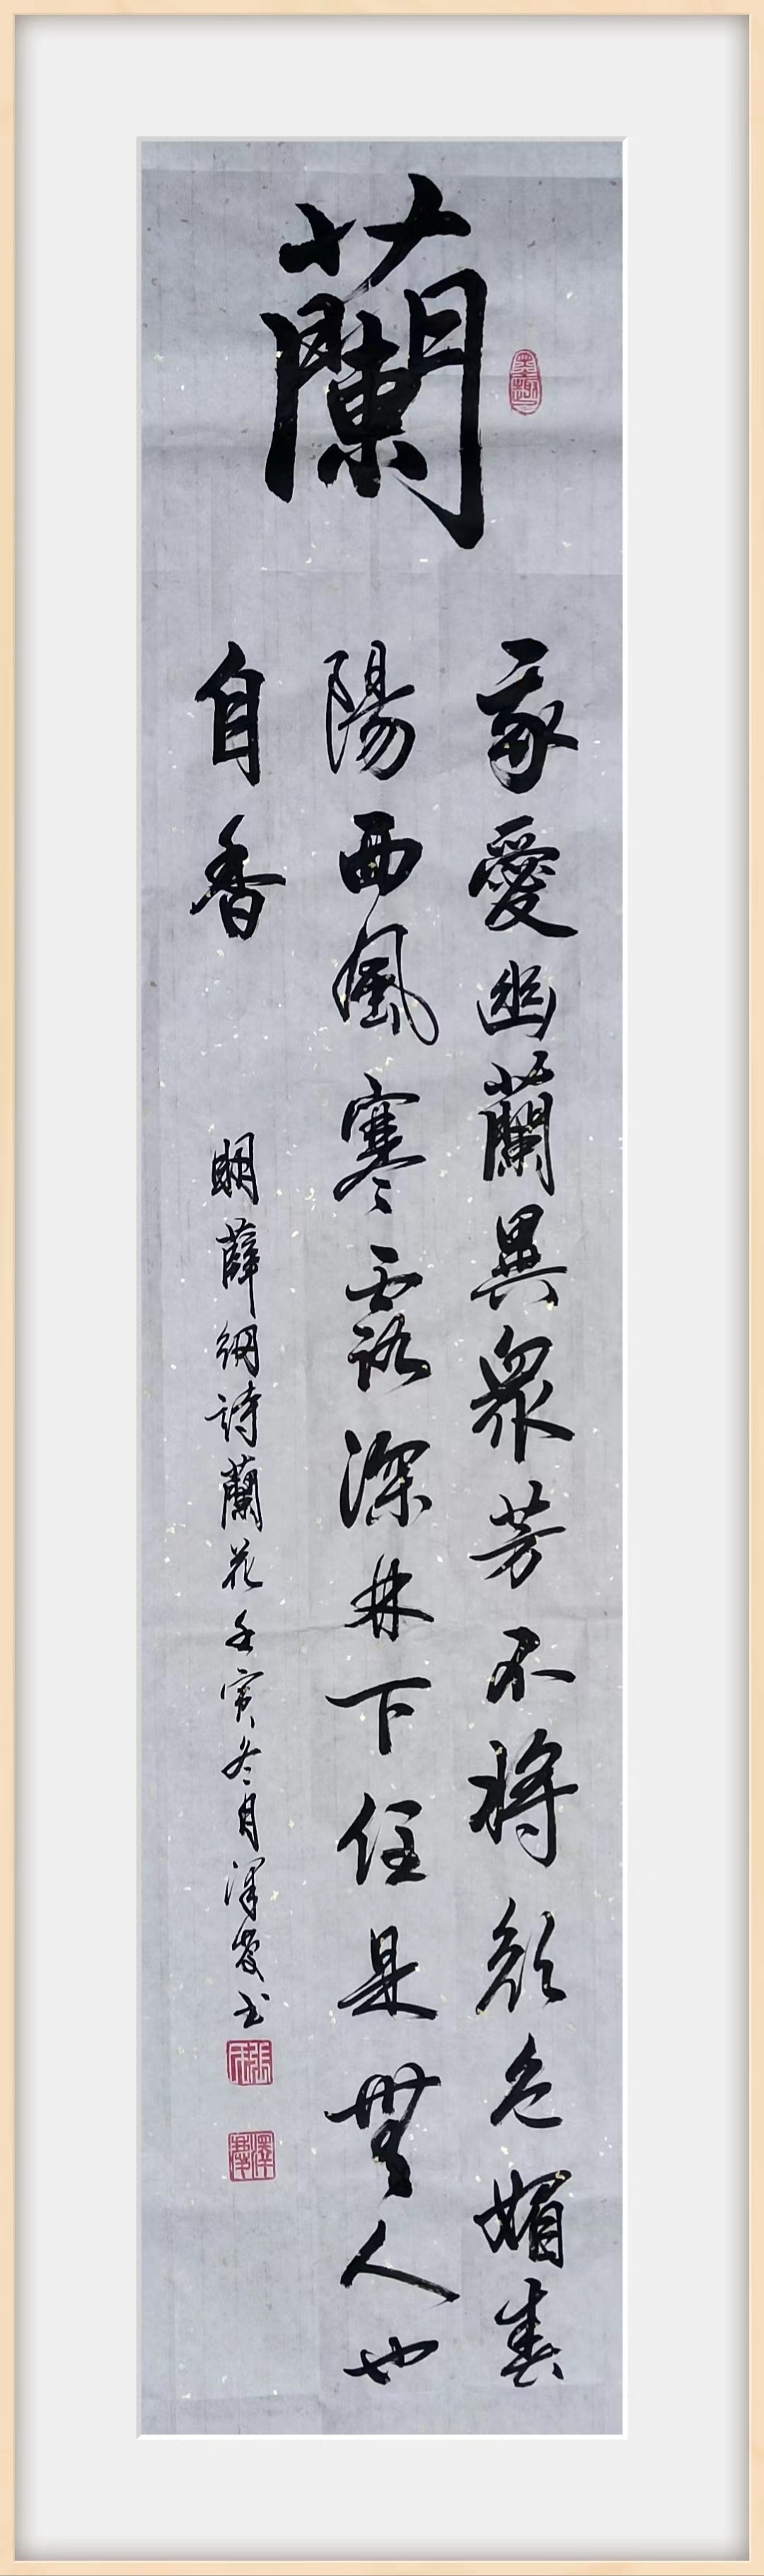 蘭
我愛幽蘭異眾芳不將顏色媚春
陽西風寒露深林下任是無人也
自香
明薛網詩蘭花壬寅冬月澤慶书